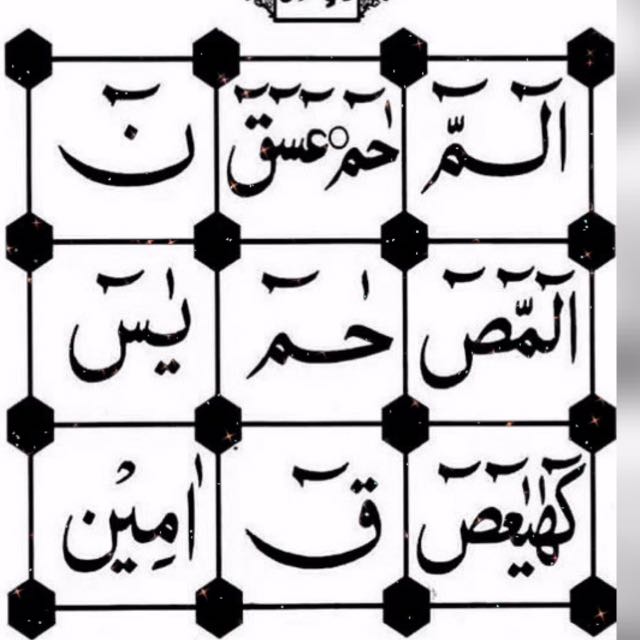 الٓمّٓ حٰمٓ ○ عٓسٓقٓ نٓ
الٓمّٓصٓ حٰمٓ يٰسٓ
كٓهٰيٰعٓصٓ قٓ اٰمِيْن